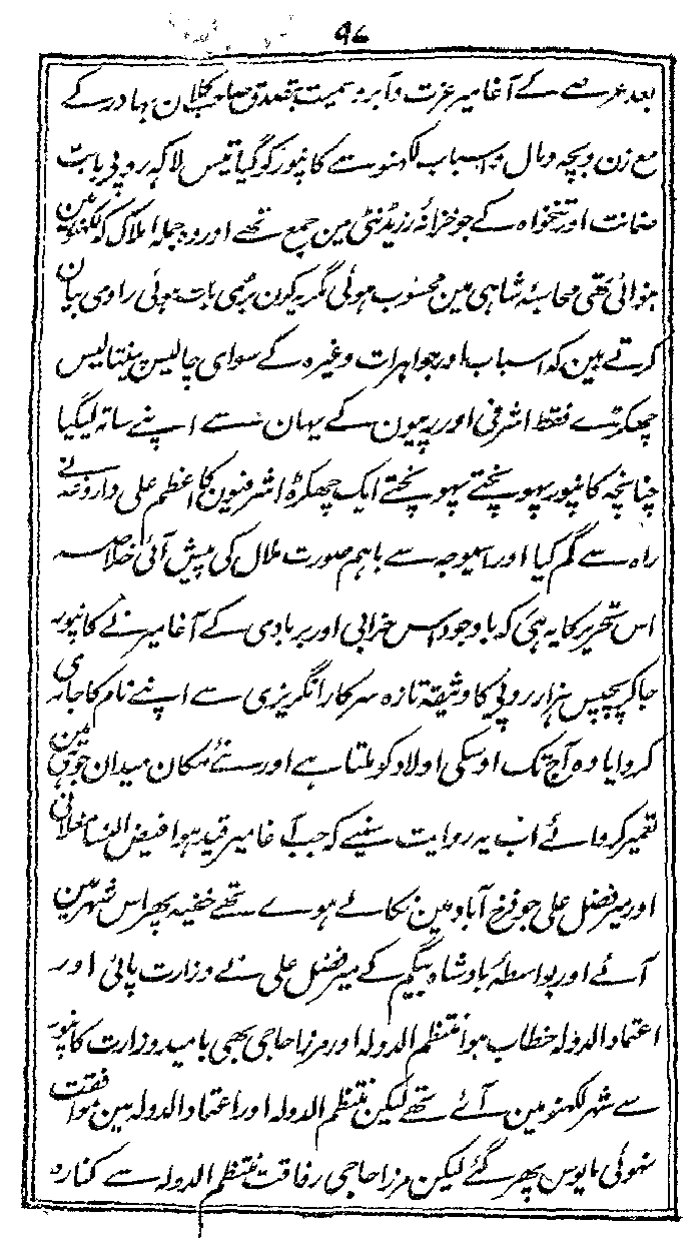 ۹۶
بعد عرصے کے آغا میر عزت و آبرو سمیت بتصدق صاحب کلان بہادر کے
مع زن و بچہ و مال و اسباب لکھنو سے کانپور کو گیا تیس لاکہ روپی بابت
ضمانت اور تنخواہ کے جو خزانۂ رزیڈنٹی مین جمع تھے اور وہ جملہ املاک کہ لکھنو مین
بنوائی تھی محاسبۂ شاہی مین محسوب ہوئی مگر یہ کون بڑی بات ہوئی راوی بیان
کرتے ہین کہ اسباب اور جواہرات وغیرہ کے سوای چالیس پینتالیس
چھکڑے فقط اشرفی اور رپیون کے یہان سے اپنے ساتہ لیگیا
چنانچہ کانپور پہونچتے پہونچتے ایک چھکڑہ اشرفیون کا اعظم علی داروغہ نے
راہ سے گم کیا اور اسیوجہ سے باہم صورت ملال کی پیش آئی خلاصہ
اس تحریر کا یہ ہی کہ باوجود اس خرابی اور بربادی کے آغا میر نے کانپور
جاکر پچیس ہزار روپی کا وثیقہ تازہ سرکار انگریزی سے اپنے نام کا جاری
کروایا وہ آج تک اوسکی اولاد کو ملتا ہے اور سنے مکان میدان جوہی مین
تعمیر کروائے اب یہ روایت سنیے کہ جب آغا میر قید ہوا فیض النسا مغلانی
اور میر فضل علی جو فرخ آباد مین نکالے ہوے تھے خفیہ پھر اس شہر مین
آئے اور بواسطۂ بادشاہ بیگم کے میر فضل علی نے وزارت پائی اور
اعتماد الدولہ خطاب ہوا منتظم الدولہ اور مرزا حاجی بھی بامید وزارت کانپور
سے شہر لکھنو مین آئے تھے لیکن منتظم الدولہ اور اعتماد الدولہ مین موافقت
نہوئی مایوس پھر گئے لیکن مرزا حاجی رفاقت منتظم الدولہ سے کنارہ